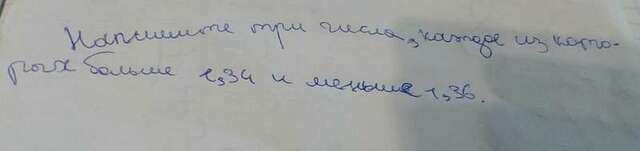 Напишите три числа, каждое из кото-
рых больше 1,34 и меньше 1,36.